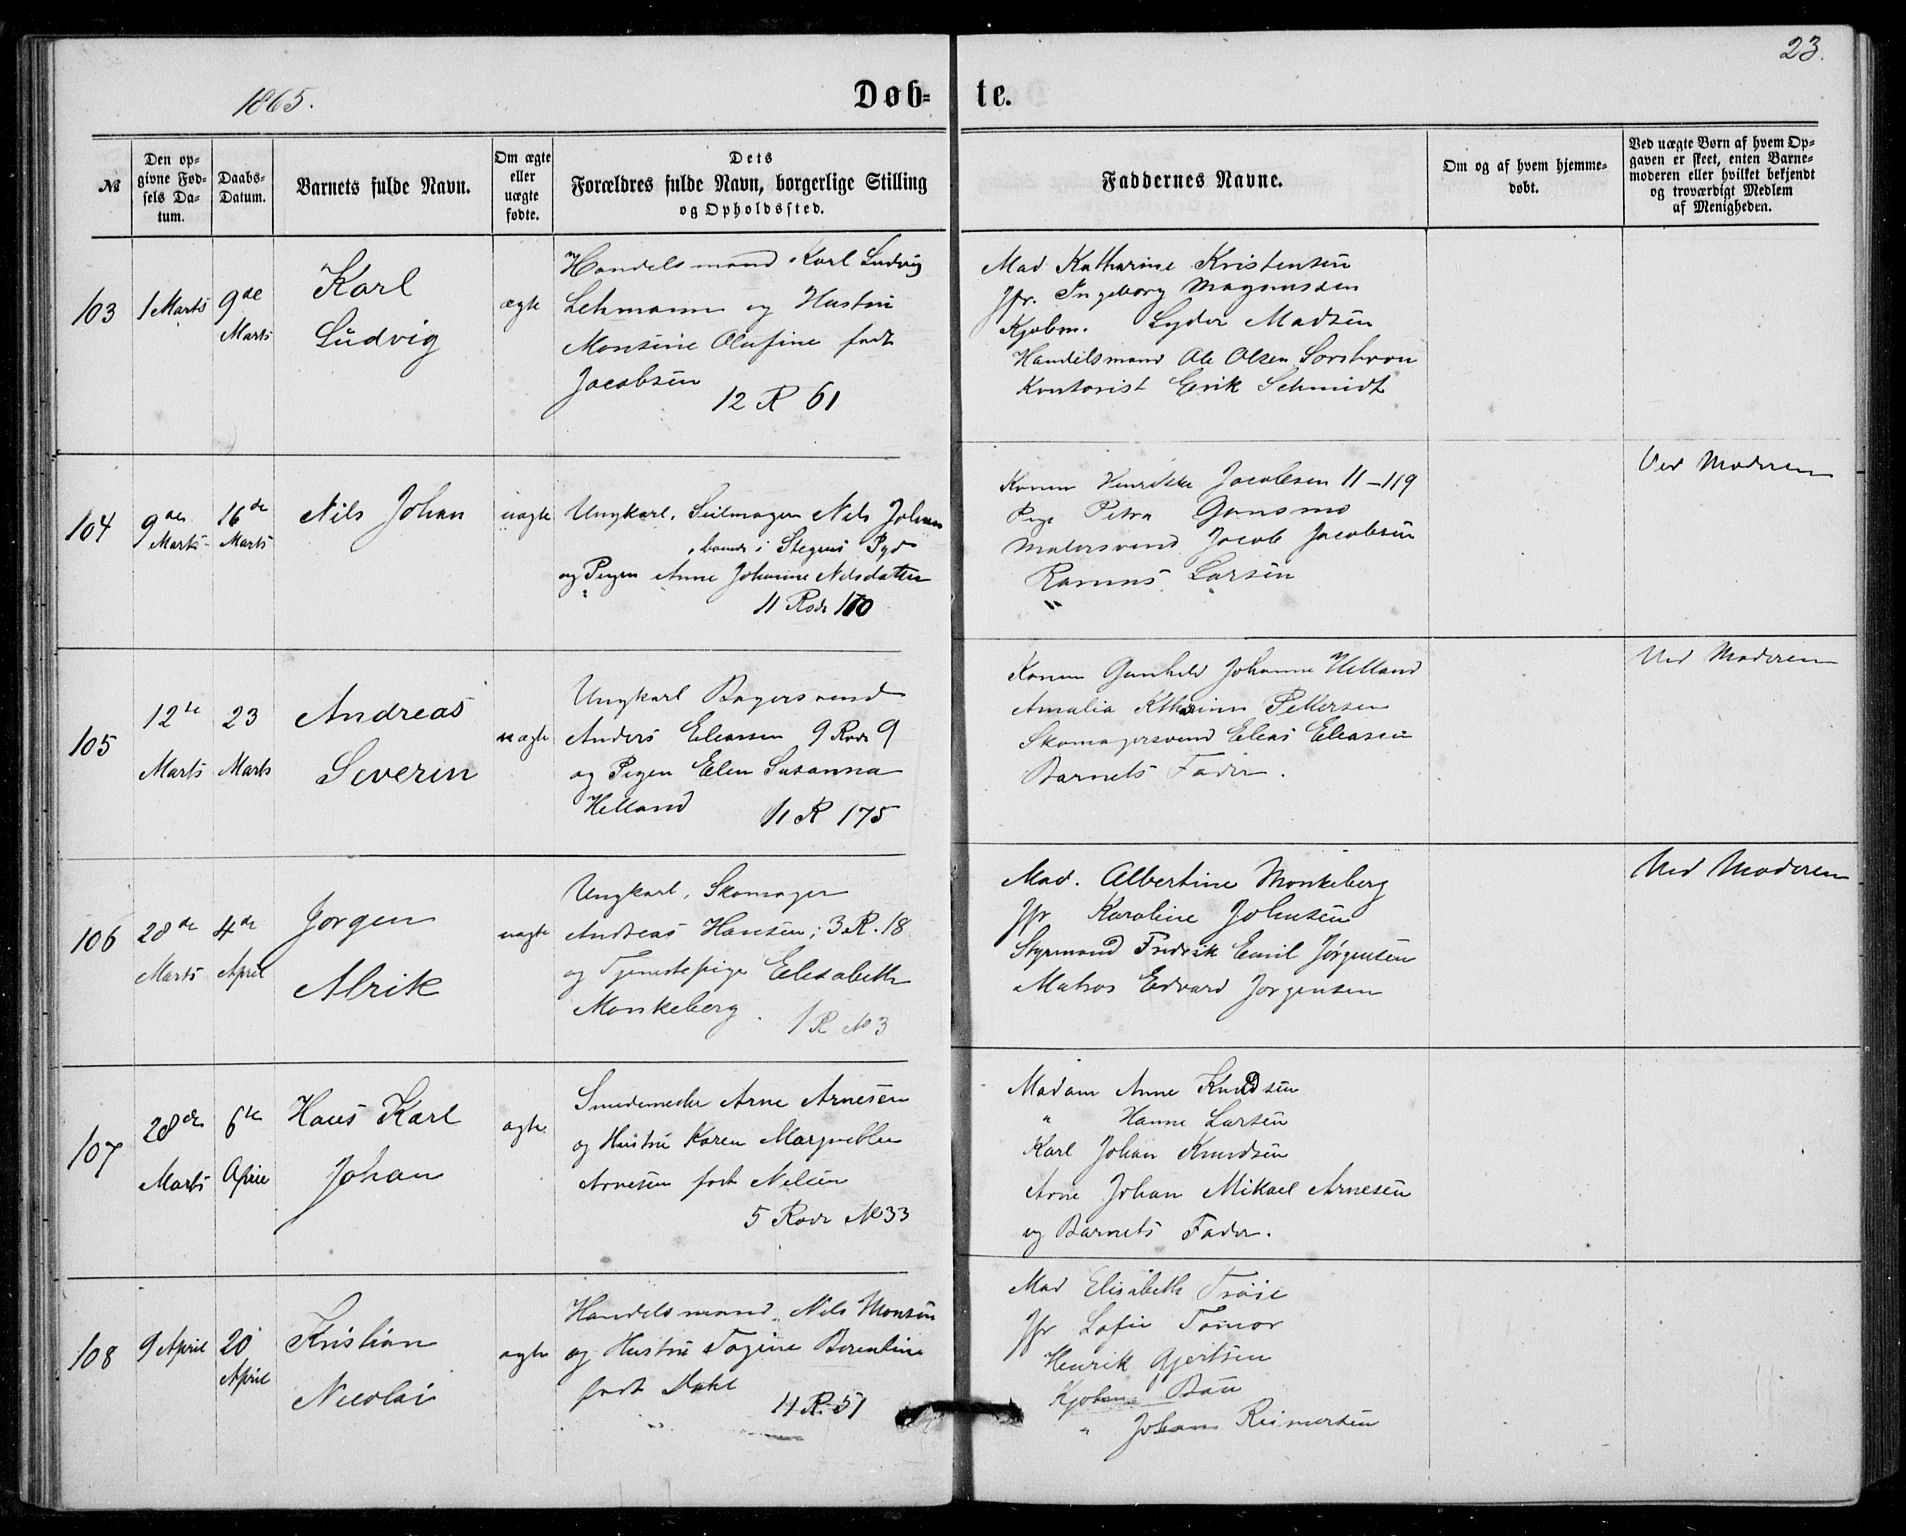 23.
1865.
Døb- te.
№
Den opgivne Fødsels Datum.
Daabs-Datum.
Barnets fulde Navn.
Om ægte eller uægte fødte.
Dets
Forældres fulde Navn, borgerlige Stilling
og Opholdssted.
Faddernes Navne.
Om og af hvem hjemmedøbt.
Ved uægte Børn af hvem Opgaven er skeet, enten Barnemoderen eller hvilket bekjendt og troværdigt Medlem af Menigheden.
103
1 Marts
9de
Marts
Karl
Ludvig
ægte
Handelsmand Karl Ludvig
Lehmann og Hustru
Monsine Olufine født
Jacobsen
12 R 61
Mad Katharine Kristensen
Jfr. Ingeborg Magnussen
Kjøbm. Lyder Madsen
Handelsmand Ole Olsen
Kontorist Erik Schmidt
104
9de
Marts
16de
Marts
Nils Johan
uægte
Ungkarl, Seilmager Nils Johan
i Stegens
og Pigen Anne Johanne Nilsdatter
11 Rode 110
Konen Henrikke Jacobsen 11-119
Pige Petra Gansmo
Malersvend Jacob Jacobsen
" Rasmus Larsen
Ved Moderen
105
12te
Marts
23
Marts
Andreas
Severin
uægte
Ungkarl Bagersvend
Anders Eleasen 9 Rode 9
og Pigen Elen Susanna
Helland
11 R 175
Konen Gunhild Johanne Helland
Amalia Pettersen
Skomagersvend Elias Eleasen
Barnets Fader.
Ved Moderen
106
28de
Marts
4de
April
Jørgen
Alrik
uægte
Ungkarl, Skomager
Andreas Hansen; 3 R. 18
og Tjenestepige Elisabeth
Monkeberg.
1 R № 3
Mad. Albertine Monkeberg
Jfr Karoline Johnsen
Styrmand Fredrik Emil Jørgensen
Matros Edvard Jørgensen
Ved Moderen
107
28de
Marts
6te
April
Hans Karl
Johan
ægte
Smedemester Arne Arnesen
og Hustru Karen Margrethe
Arnesen født Nilsen
5 Rode № 33
Madam Anne Knudsen
" Hanne Larsen
Karl Johan Knudsen
Arne Johan Mikael Arnesen
og Barnets Fader.
108
9 April
20
April
Kristian
Nicolai
ægte
Handelsmand Nils Monsen
og Hustru Berentine
født Dahl
11 R. 51
Mad Elisabeth
Jfr
Henrik Gjertsen
Kjøbm.
" Johan Reimertsen